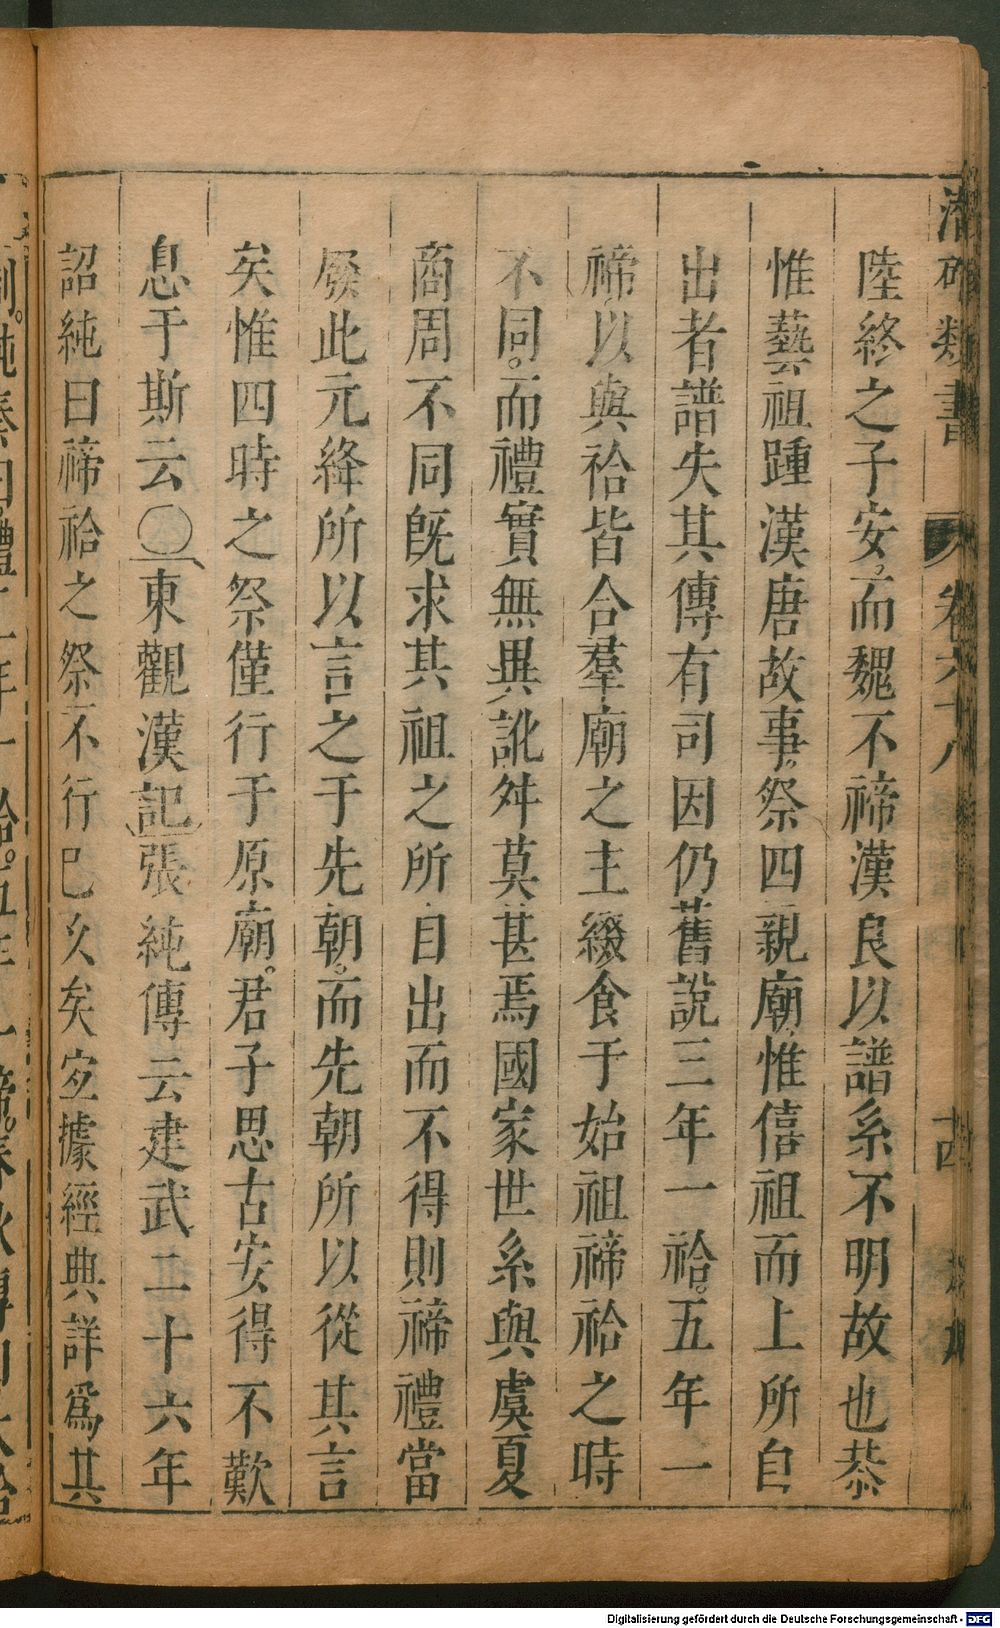 潛確類書 卷六十八 十四
陸終之子安。而魏不禘漢良以譜系不明故也恭
惟藝祖踵漢唐故事。祭四親廟惟僖祖而上所自
出者譜失其傳有司因仍舊說三年一祫。五年一
禘以與祫皆合羣廟之主綴食于始祖禘祫之時
不同。而禮實無異訛舛莫甚焉國家世系與虞夏
商周不同旣求其祖之所自出而不得則禘禮當
廢此元絳所以言之于先朝。而先朝所以從其言
矣惟四時之祭僅行于原廟。君子思古安得不歎
息于斯云〇東觀漢記張純傳云建武二十六年
詔純曰禘祫之祭不行已久矣宐據經典詳爲其
制。純奏曰禮三年一祫。五年一禘。春秋傳曰大祫
Digitalisierung gefördert durch die Deutsche Forschungsgemeinschaft - DFG